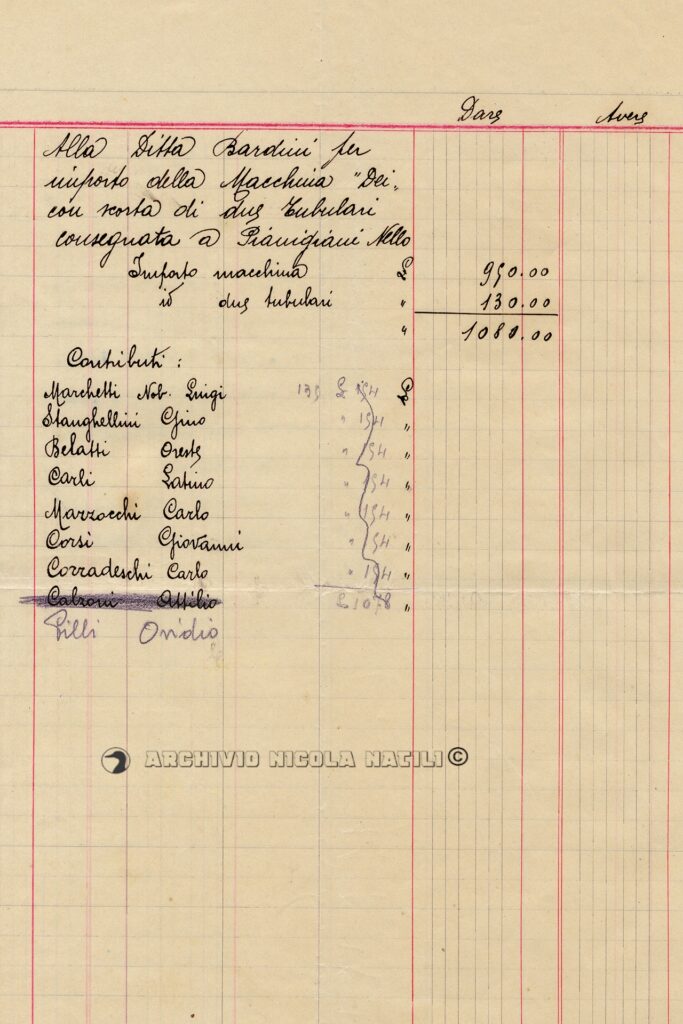 Dare Avere
Alla Ditta Bardini per
importo della Macchina "Dei"
con scorta di due tubulari
consegnata a Pianigiani Nello
Importo macchina £ 950.00
id due tubulari " 130.00
" 1080.00
Contributi :
Marchetti Nob. Luigi 135 £ 154 £
Stanghellini Gino " 154 "
Belatti Oreste " 154 "
Carli Latino " 154 "
Mazzocchi Carlo " 154 "
Corsi Giovanni " 154 "
Corradeschi Carlo " 154 "
Calzoni Attilio £ 1078 "
Lilli Ovidio
ARCHIVIO NICOLA NATILI ©